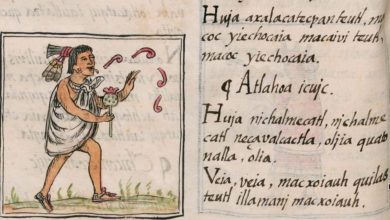 Huja axalacatzpan teutl, ma
coc yiechocaia. macaivi teutl,
macoc yiechocaia.
¶ Atlahoa icuic.
Huja nichalmecatl, nichalme
catl necavalcactla, olia qua
nalla, olia.
Veia, veia, macxoiauh quilaz
teutl illamani macxoiauh.